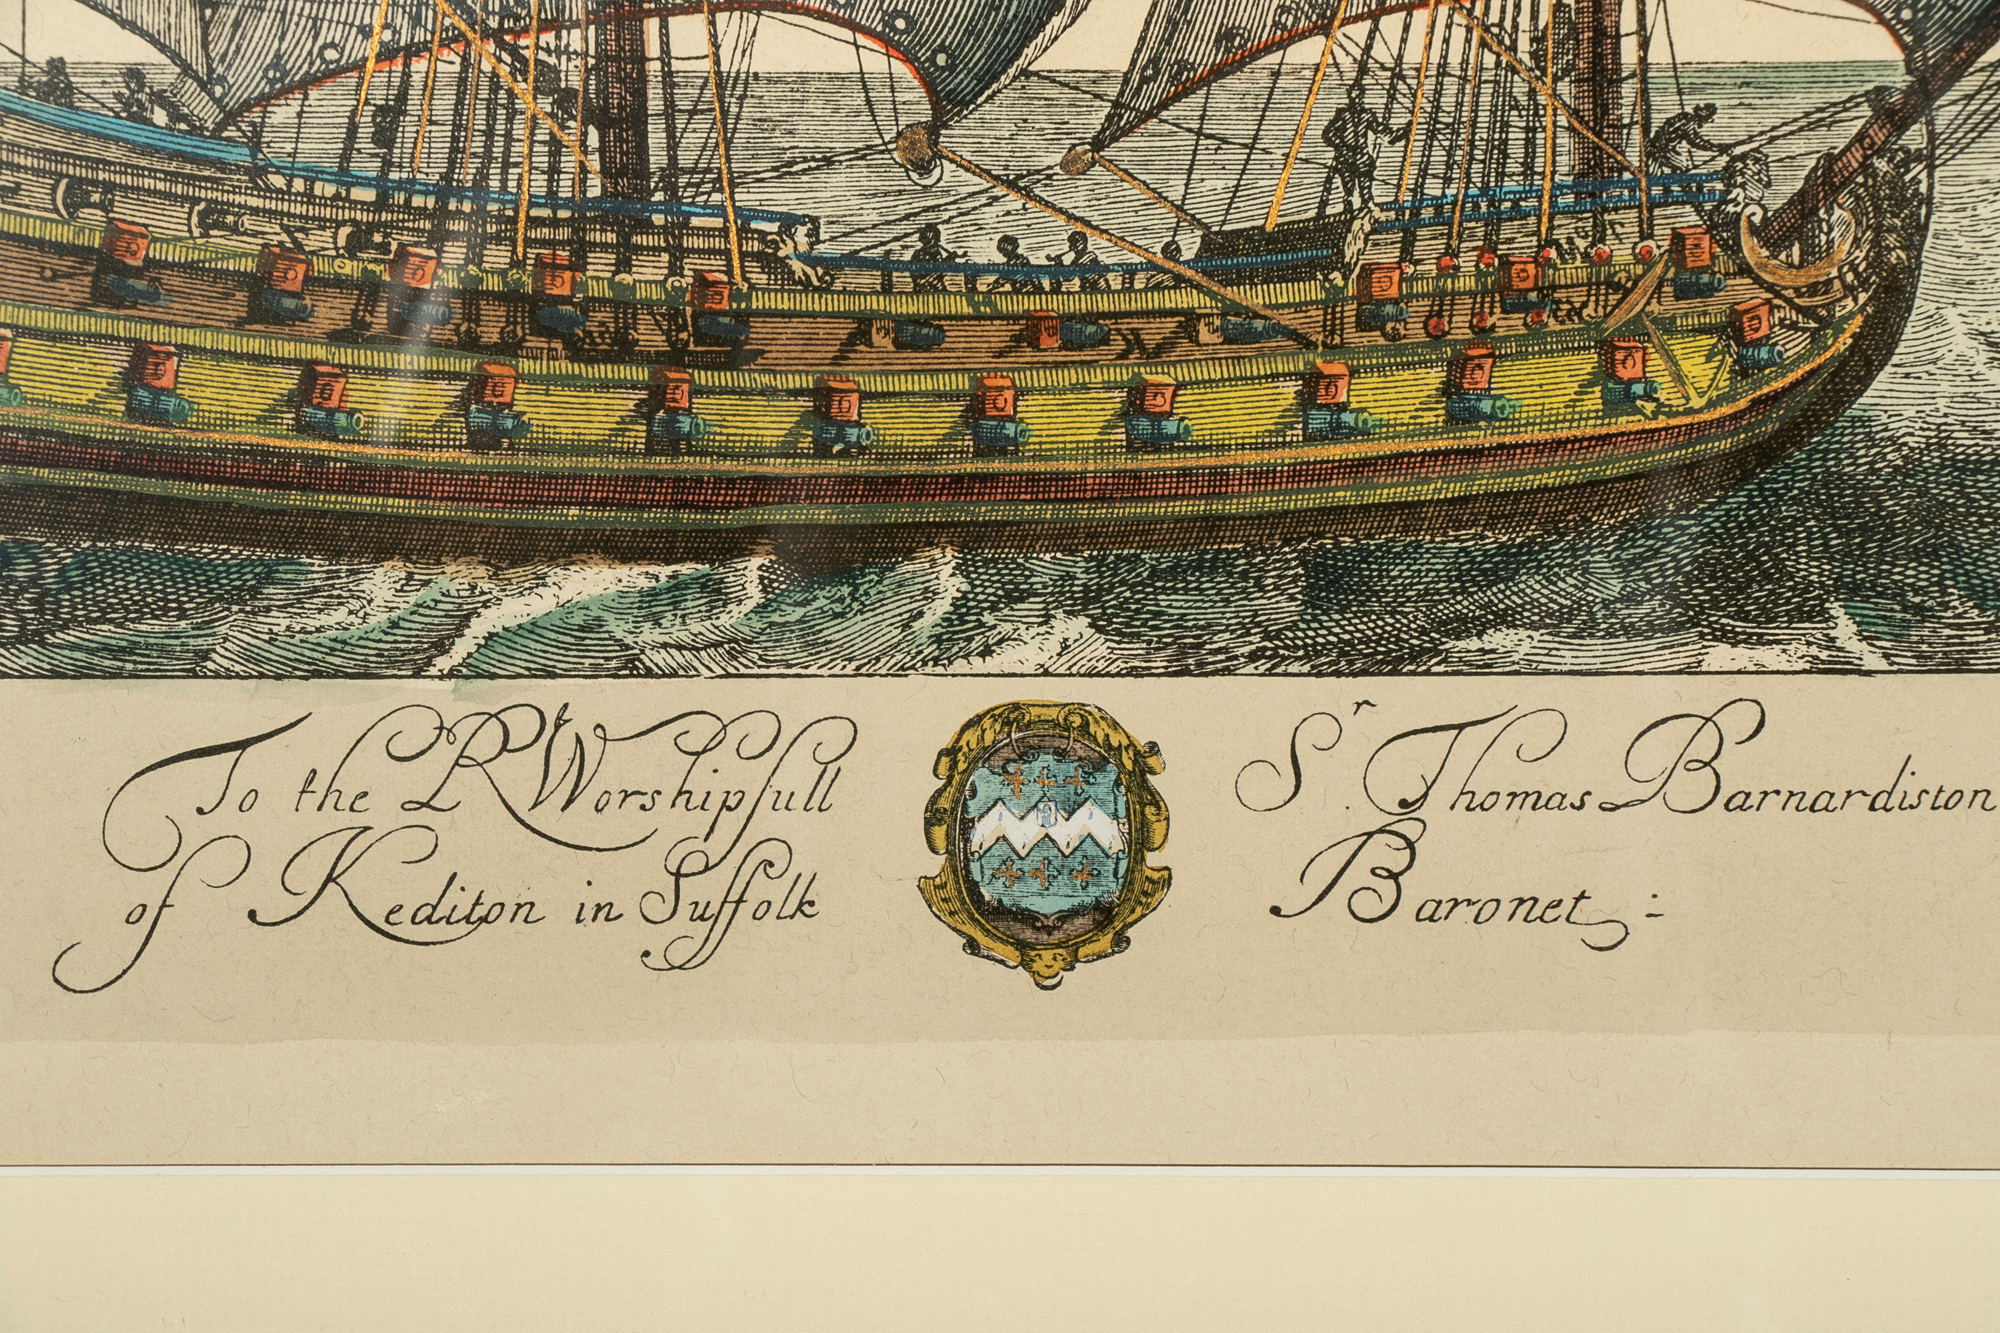 To the Rt Worshipfull Sr. Thomas Barnardiston
of Kediton in Suffolk Baronet :